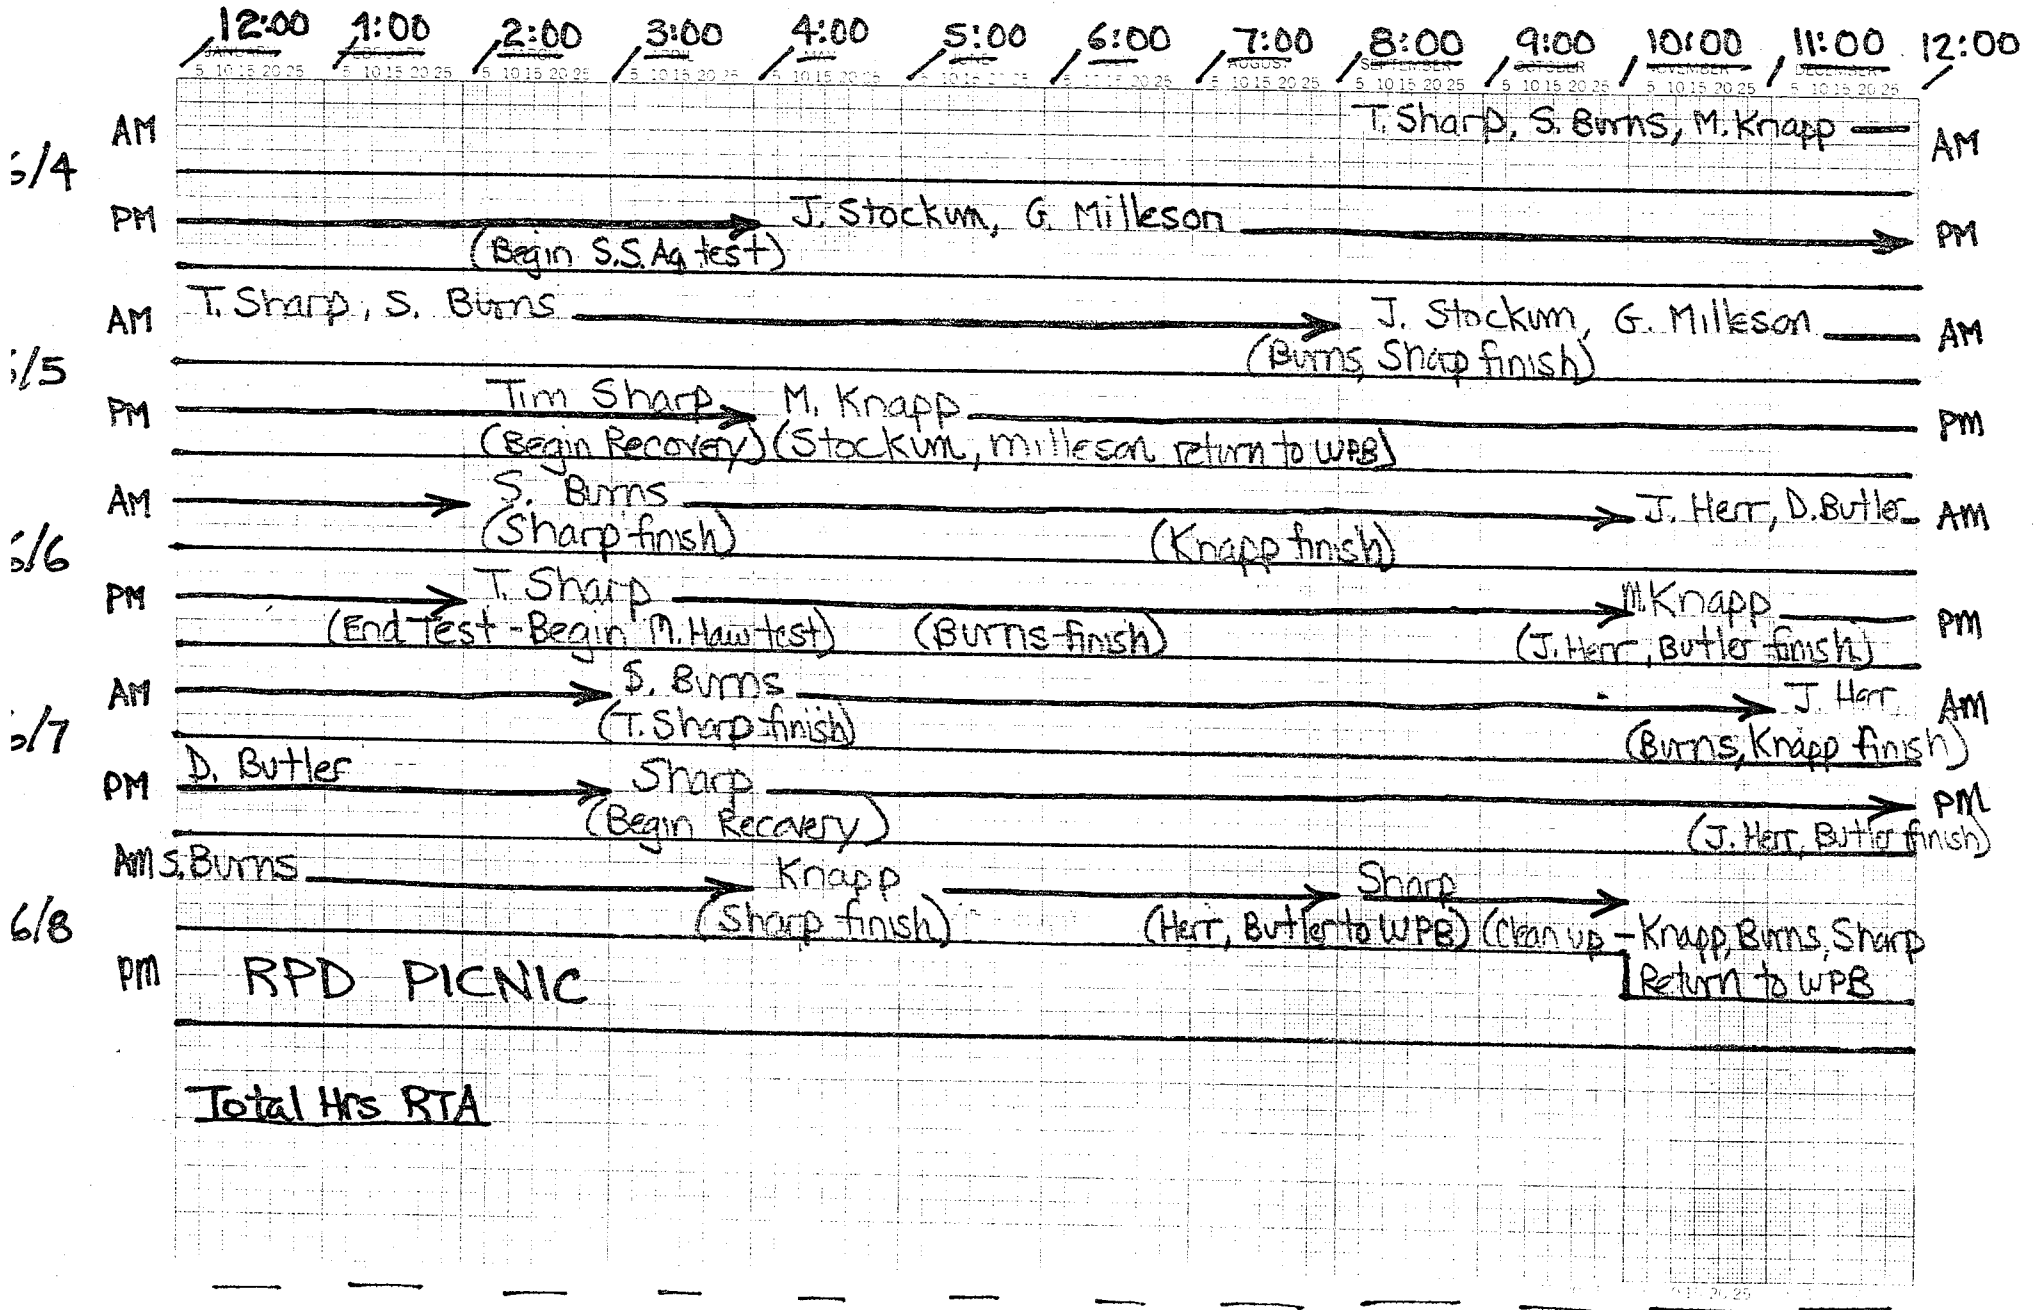 12:00 1:00 2:00 3:00 4:00 5:00 6:00 7:00 8:00 9:00 10:00 11:00 12:00
JANUARY MARCH MAY AUGUST SEPTEMBER OCTOBER NOVEMBER DECEMBER
5 10 15 20 25 5 10 15 20 25 5 10 15 20 25 5 10 15 20 25 5 10 15 20 25 5 10 15 20 25 5 10 15 20 25 5 10 15 20 25 5 10 15 20 25
AM T. Sharp, S. Burns, M. Knapp AM
6/4
PM J. Stockum, G. Milleson PM
(Begin S.S. Aq test)
AM T. Sharp, S. Burns J. Stockum, G. Milleson AM
(Burns, Sharp finish)
/5
PM Tim Sharp M. Knapp PM
(Begin Recovery) (Stockum, Milleson return to WPB)
AM S. Burns J. Herr, D. Butler AM
(Sharp finish) (Knapp finish)
6/6
PM T. Sharp M. Knapp PM
(End Test - Begin M. Haw test) (Burns finish) (J. Herr, Butler finish)
AM S. Burns J. Herr AM
(T. Sharp finish) (Burns, Knapp finish)
/7
PM D. Butler Sharp PM
(Begin Recovery) (J. Herr, Butler finish)
AM S. Burns Knapp Sharp
(Sharp finish) (Herr, Butler to WPB) (Clean up - Knapp, Burns, Sharp
6/8
PM RPD PICNIC Return to WPB
Total Hrs RTA